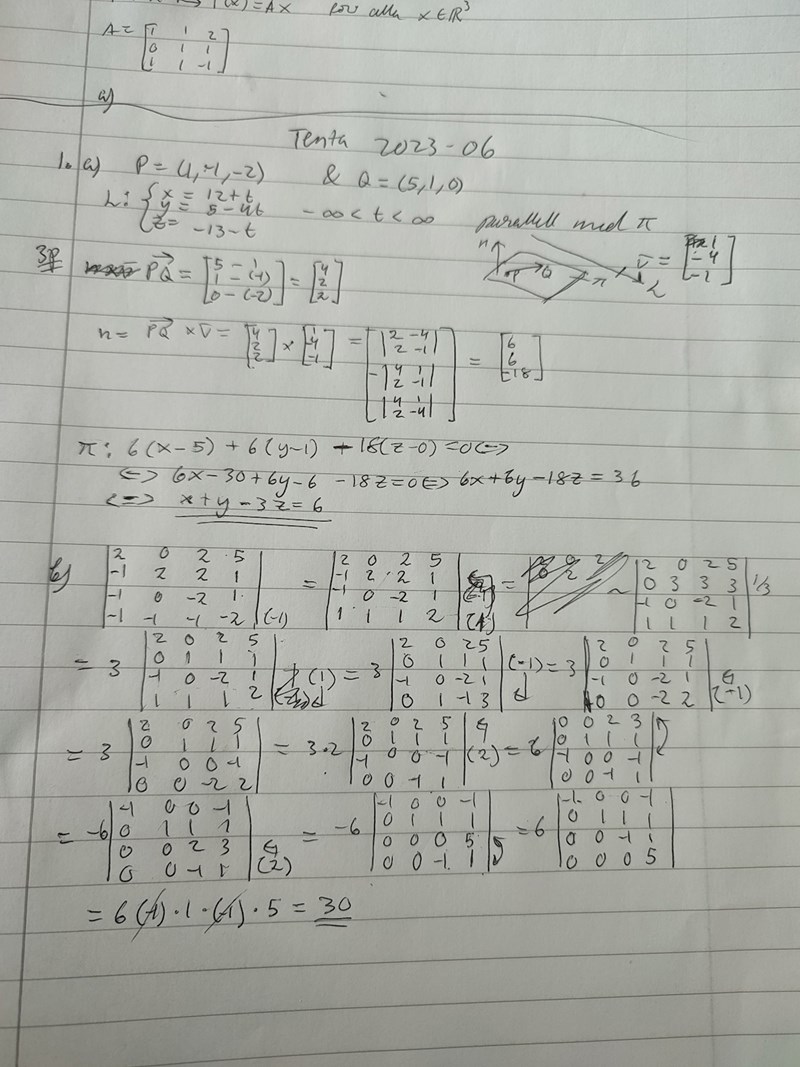 T(x) = Ax för alla x ∈ ℝ³
A = [1 1 2
0 1 1
1 1 -1]
a)
Tenta 2023-06
1. a) P = (1, -1, -2) & Q = (5, 1, 0)
L: { x = 12 + t
y = 5 - 4t - ∞ < t < ∞ parallell med π
z = -13 - t
n P Q π L v̄ = [1
-4
-1]
3p PQ = [5 - 1
1 - (-1)
0 - (-2)] = [4
2
2]
n = PQ × v̄ = [4
2
2] × [1
-4
-1] = [|2 -4
2 -1|
-|4 1
2 -1|
|4 1
2 -4|] = [6
6
-18]
π: 6(x-5) + 6(y-1) - 18(z-0) = 0 <=>
<=> 6x - 30 + 6y - 6 - 18z = 0 <=> 6x + 6y - 18z = 36
<=> x + y - 3z = 6
b) |2 0 2 5
-1 2 2 1
-1 0 -2 1
-1 -1 -1 -2| (-1) = |2 0 2 5
-1 2 2 1
-1 0 -2 1
1 1 1 2| = ~ |2 0 2 5
0 3 3 3
-1 0 -2 1
1 1 1 2| 1/3
= 3 |2 0 2 5
0 1 1 1
-1 0 -2 1
1 1 1 2| (1) = 3 |2 0 2 5
0 1 1 1
-1 0 -2 1
0 1 -1 3| (-1) = 3 |2 0 2 5
0 1 1 1
-1 0 -2 1
0 0 -2 2| (-1)
= 3 |2 0 2 5
0 1 1 1
-1 0 0 -1
0 0 -2 2| = 3·2 |2 0 2 5
0 1 1 1
-1 0 0 -1
0 0 -1 1| (2) = 6 |0 0 2 3
0 1 1 1
-1 0 0 -1
0 0 -1 1|
= -6 |-1 0 0 -1
0 1 1 1
0 0 2 3
0 0 -1 1| (2) = -6 |-1 0 0 -1
0 1 1 1
0 0 0 5
0 0 -1 1| = 6 |-1 0 0 -1
0 1 1 1
0 0 -1 1
0 0 0 5|
= 6(-1)·1·(-1)·5 = 30